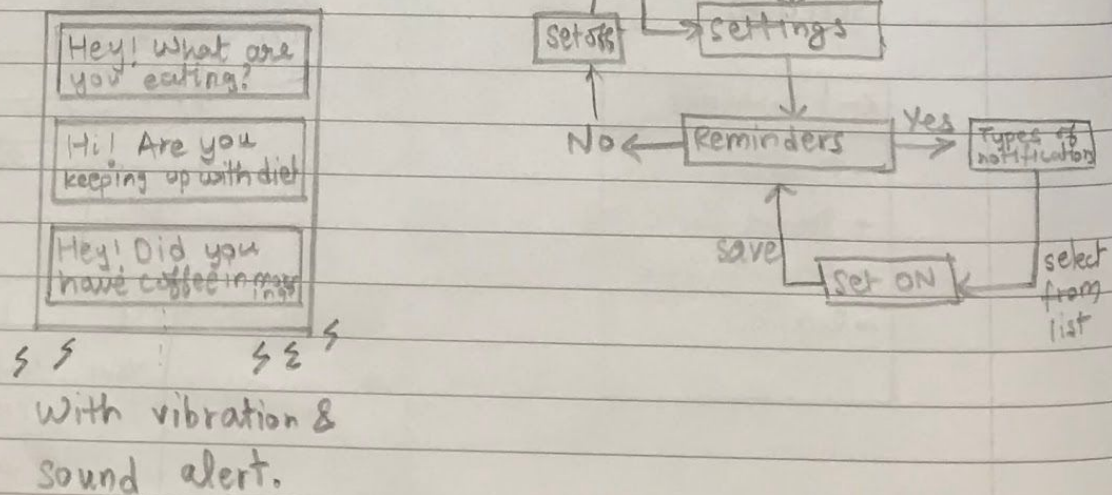 Hey! What are
you eating?
Hi! Are you
keeping up with diet
Hey! Did you
have coffee in morn
ings
With vibration &
sound alert.
Set off
Settings
No
Reminders
Yes
Types of
notification
save
Set ON
select
from
list